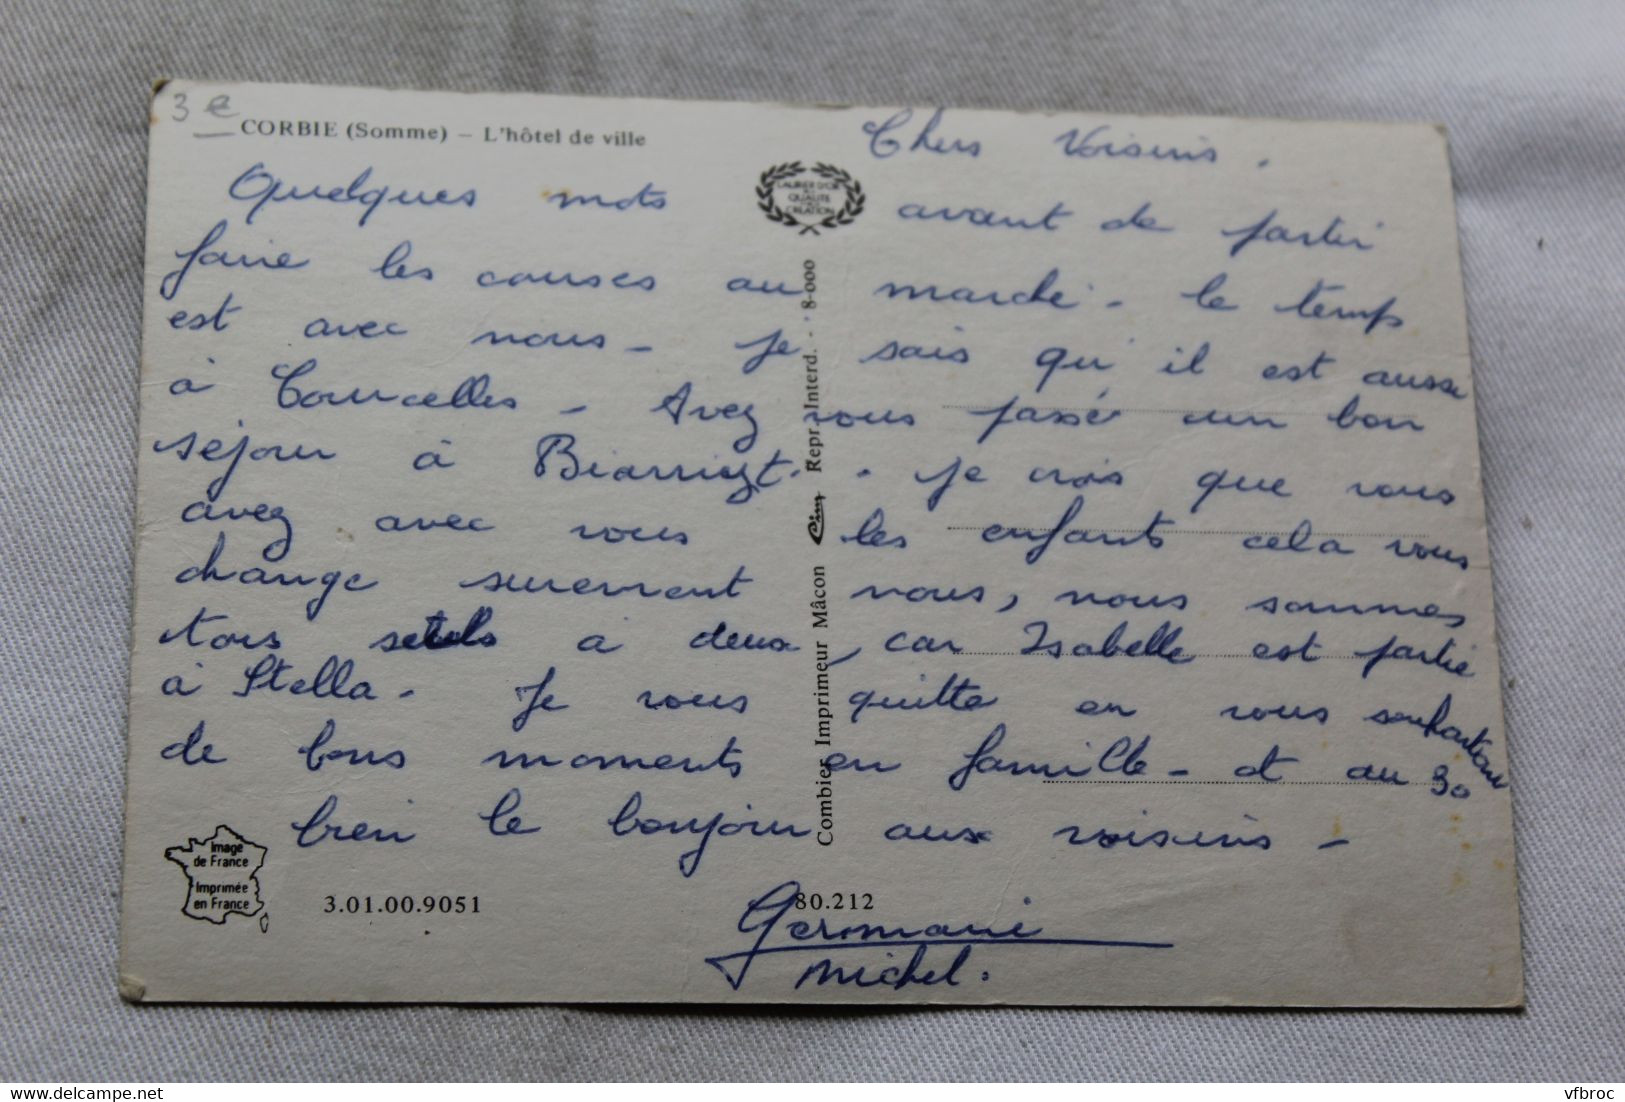 3 e
CORBIE (Somme) – L'hôtel de ville
Chers Voisins.
Quelques mots avant de partir
faire les courses au marché - le temps
est avec nous - je sais qu'il est aussi
à Courcelles - Avez vous passé un bon
séjour à Biarrizt. - Je crois que vous
avez avec vous les enfants cela vous
change surement nous, nous sommes
tous seuls à deux, car Isabelle est partie
à Stella - Je vous quitte en vous souhaitant
de bons moments en famille - et au 30
bien le bonjour aux voisins -
Germaine
Michel.
LAURIER D'OR
DE
QUALITÉ
CRÉATION
Combier Imprimeur Mâcon Cim Repr. Interd. - 8-000
Image
de France
Imprimée
en France
3.01.00.9051
80.212
vfbroc